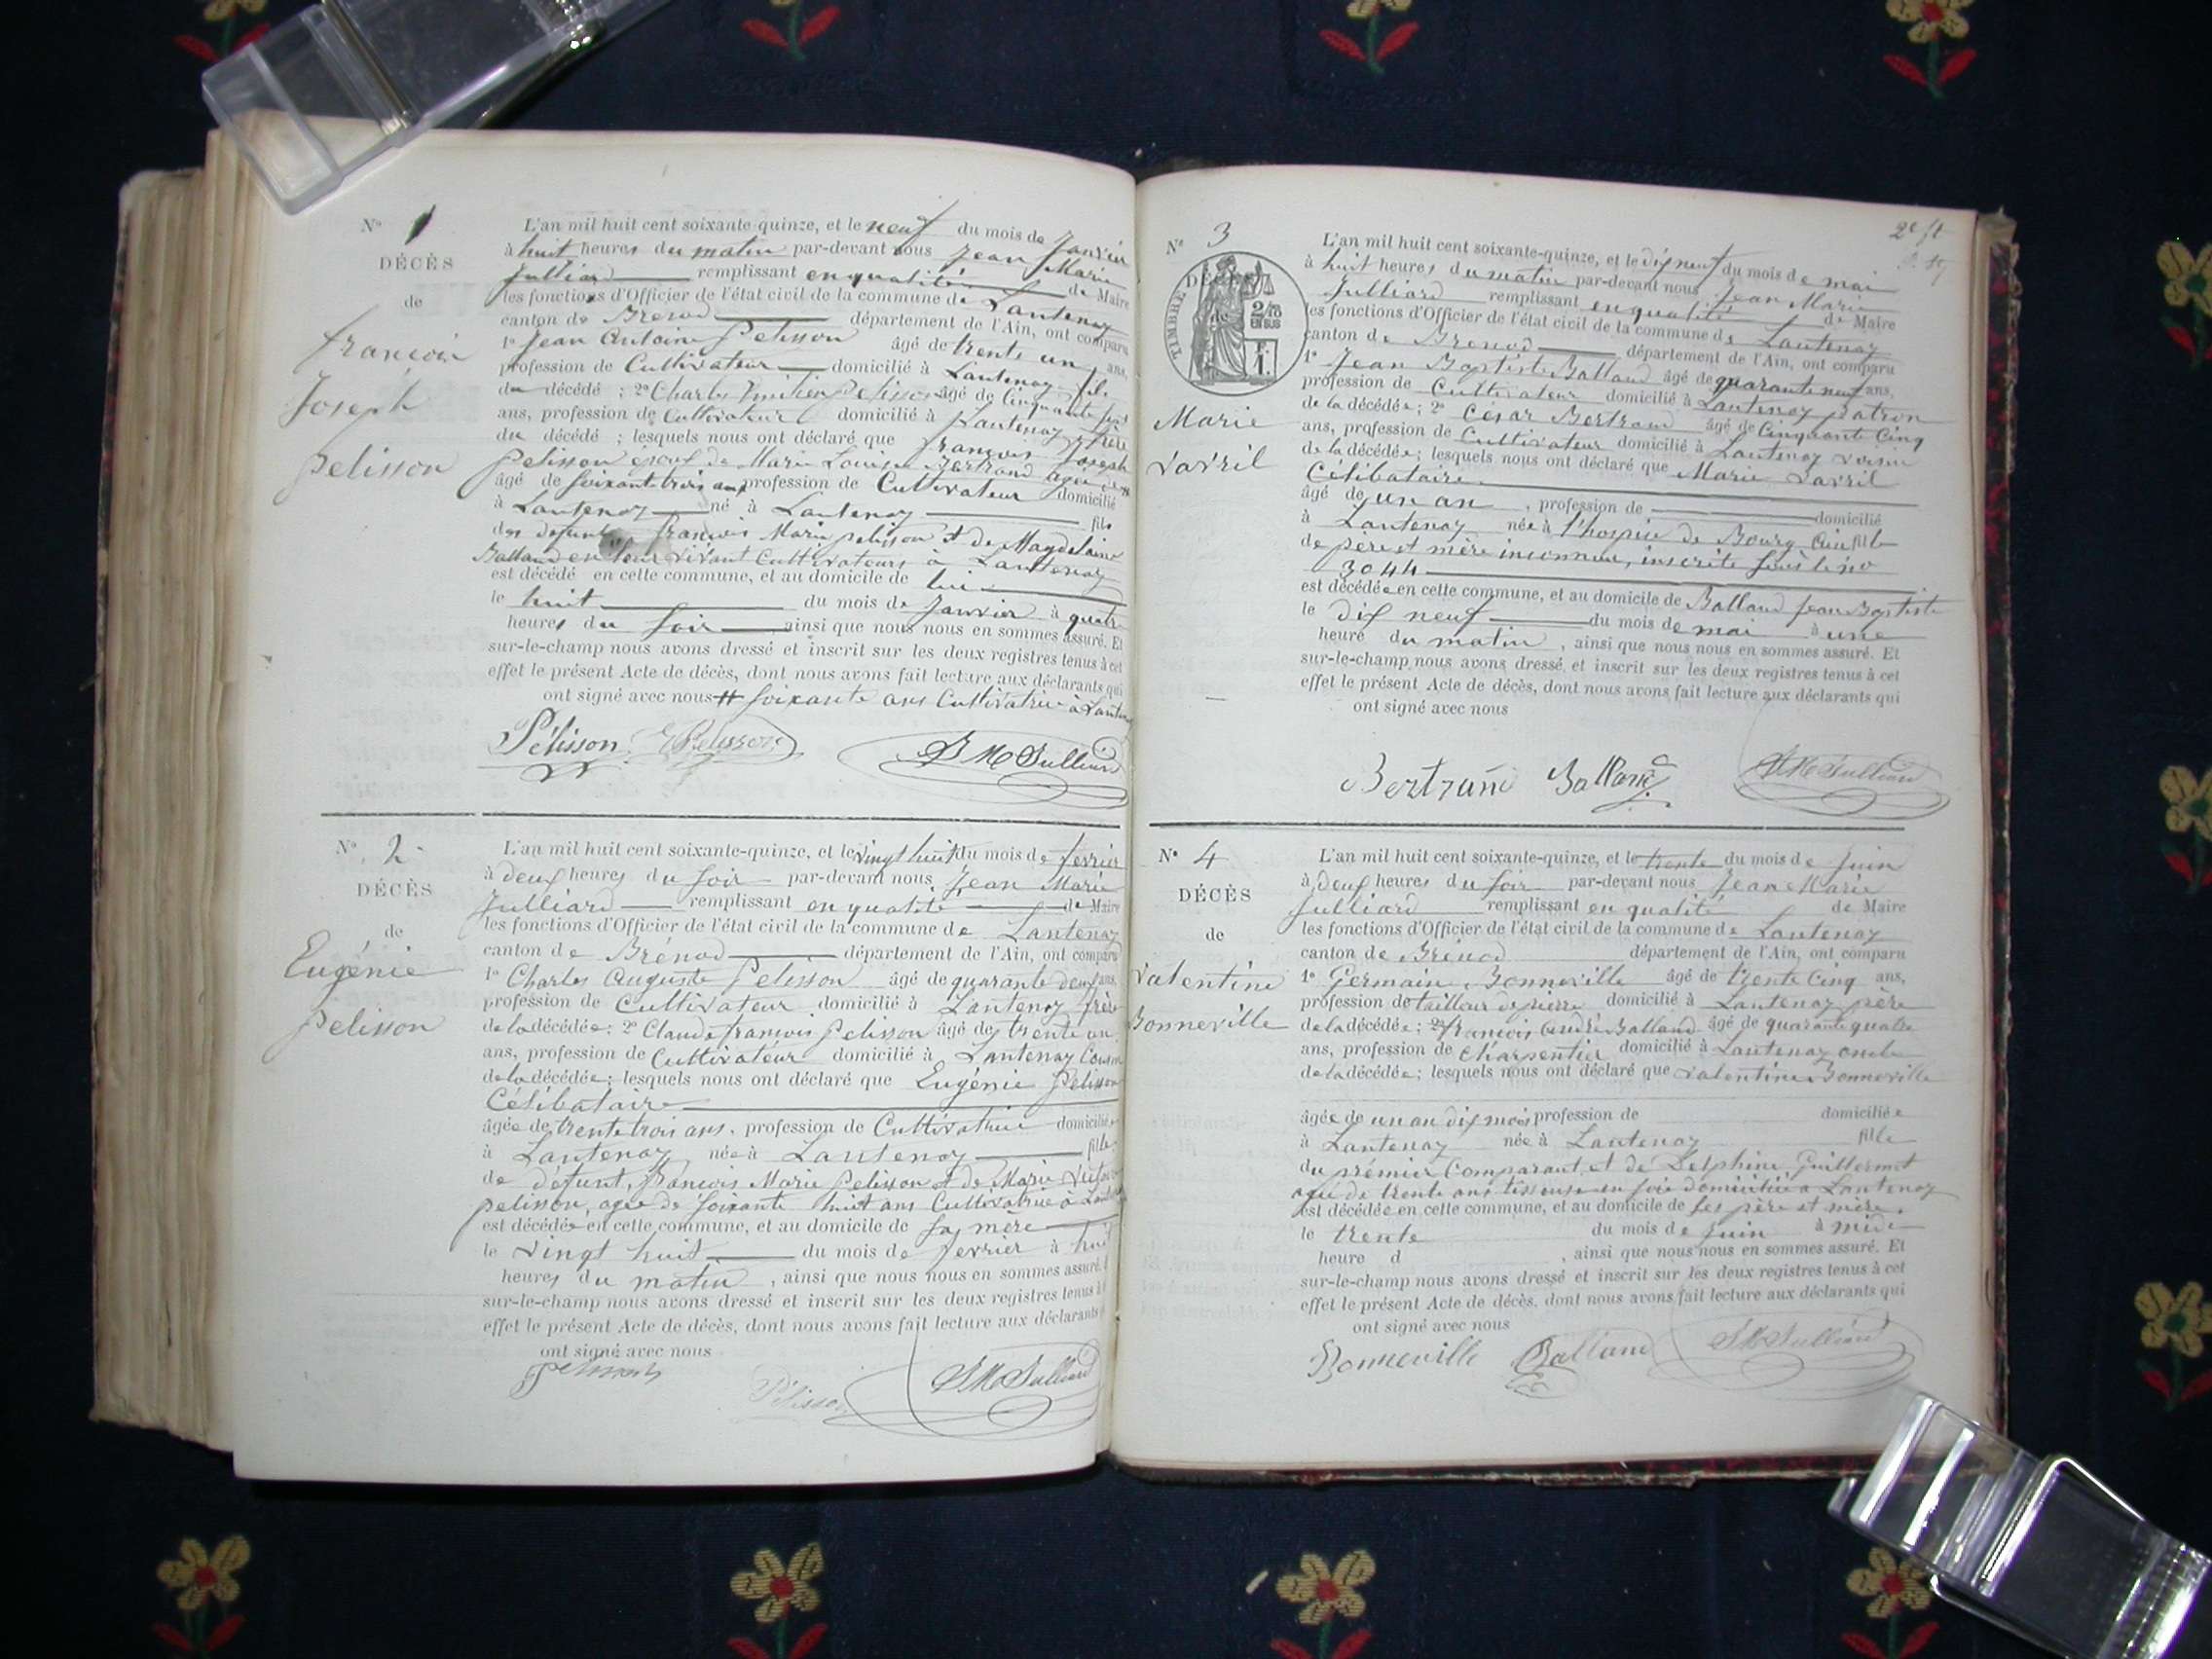 N° 1
DÉCÈS
de
françois
Joseph
pelisson
L'an mil huit cent soixante-quinze, et le neuf du mois de Janvier
à huit heures du matin par-devant nous Jean Marie
Julliard remplissant en qualité de Maire
les fonctions d'Officier de l'état civil de la commune de Lantenay
canton de Brenod département de l'Ain, ont comparu
1° Jean Antoine Pelisson âgé de trente un ans,
profession de Cultivateur domicilié à Lantenay fils
du décédé ; 2° Charles Emilien Pelisson âgé de Cinquante sept
ans, profession de Cultivateur domicilié à Lantenay frère
du décédé ; lesquels nous ont déclaré que françois Joseph
Pelisson epoux de Marie Louise Bertrand agée de #
âgé de soixante trois ans profession de Cultivateur domicilié
à Lantenay né à Lantenay fils
des defunts françois Marie pelisson et de Magdelaine
Balland en leur vivant Cultivateurs à Lantenay
est décédé en cette commune, et au domicile de lui
le huit du mois de Janvier à quatre
heures du soir ainsi que nous nous en sommes assuré. Et
sur-le-champ nous avons dressé et inscrit sur les deux registres tenus à cet
effet le présent Acte de décès, dont nous avons fait lecture aux déclarants qui
ont signé avec nous # soixante ans Cultivatrice à Lantenay
Pélisson E Pelisson J M Julliard
N° 2
DÉCÈS
de
Eugénie
pelisson
L'an mil huit cent soixante-quinze, et le vingt huit du mois de fevrier
à deux heures du soir par-devant nous Jean Marie
Julliard remplissant en qualité de Maire
les fonctions d'Officier de l'état civil de la commune de Lantenay
canton de Brénod département de l'Ain, ont comparu
1° Charles Auguste Pelisson âgé de quarante deux ans,
profession de Cultivateur domicilié à Lantenay frère
de la décédée ; 2° Claude françois Pelisson âgé de trente un
ans, profession de Cultivateur domicilié à Lantenay Cousin
de la décédée ; lesquels nous ont déclaré que Eugénie Pelisson
Célibataire
âgée de trente trois ans, profession de Cultivatrice domiciliée
à Lantenay née à Lantenay fille
de défunt, françois Marie Pelisson et de Marie
pelisson, agée de soixante huit ans Cultivatrice à Lantenay
est décédée en cette commune, et au domicile de sa mère
le vingt huit du mois de fevrier à huit
heures du matin, ainsi que nous nous en sommes assuré. Et
sur-le-champ nous avons dressé et inscrit sur les deux registres tenus à
effet le présent Acte de décès, dont nous avons fait lecture aux déclarants
ont signé avec nous
Pelisson Pélisson J M Julliard
2e ft
N° 3
TIMBRE
DÉCÈS
de
2/10
EN SUS
Marie
Lavril
L'an mil huit cent soixante-quinze, et le dix neuf du mois de mai
à huit heures du matin par-devant nous Jean Marie
Julliard remplissant en qualité de Maire
les fonctions d'Officier de l'état civil de la commune de Lantenay
canton de Brenod département de l'Ain, ont comparu
1° Jean Baptiste Balland âgé de quarante neuf ans,
profession de Cultivateur domicilié à Lantenay patron
de la décédée ; 2° César Bertrand âgé de Cinquante Cinq
ans, profession de Cultivateur domicilié à Lantenay voisin
de la décédée ; lesquels nous ont déclaré que Marie Lavril
Célibataire
âgé de un an, profession de domicilié
à Lantenay née à l'hospice de Bourg Ain fille
de père et mère inconnus, inscrite sous le no
3044
est décédée en cette commune, et au domicile de Balland Jean Baptiste
le dix neuf du mois de mai à une
heure du matin, ainsi que nous nous en sommes assuré. Et
sur-le-champ nous avons dressé et inscrit sur les deux registres tenus à cet
effet le présent Acte de décès, dont nous avons fait lecture aux déclarants qui
ont signé avec nous
Bertrand Balland J M Julliard
N° 4
DÉCÈS
de
Valentine
Bonneville
L'an mil huit cent soixante-quinze, et le trente du mois de Juin
à deux heures du soir par-devant nous Jean Marie
Julliard remplissant en qualité de Maire
les fonctions d'Officier de l'état civil de la commune de Lantenay
canton de Brénod département de l'Ain, ont comparu
1° Germain Bonneville âgé de trente Cinq ans,
profession de tailleur de pierre domicilié à Lantenay père
de la décédée ; 2° françois André Balland âgé de quarante quatre
ans, profession de Charpentier domicilié à Lantenay oncle
de la décédée ; lesquels nous ont déclaré que Valentine Bonneville
âgée de un an dix mois profession de domiciliée
à Lantenay née à Lantenay fille
du prémier Comparant, et de Delphine Guillermet
agée de trente ans tisseuse en soie domiciliée a Lantenay
est décédée en cette commune, et au domicile de ses père et mère.
le trente du mois de Juin à midi
heure d , ainsi que nous nous en sommes assuré. Et
sur-le-champ nous avons dressé et inscrit sur les deux registres tenus à cet
effet le présent Acte de décès, dont nous avons fait lecture aux déclarants qui
ont signé avec nous
Bonneville Balland J M Julliard